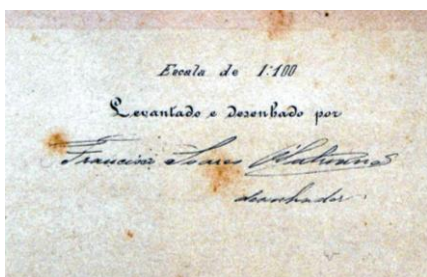 Escala de 1:100
Levantado e desenhado por
Francisco Soares
desenhador